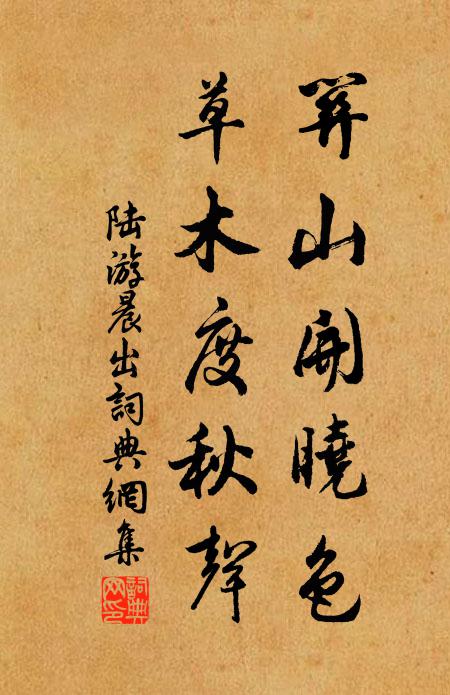 關山開曉色
草木度秋聲
陸游晨出詞典網集
詞典
网印